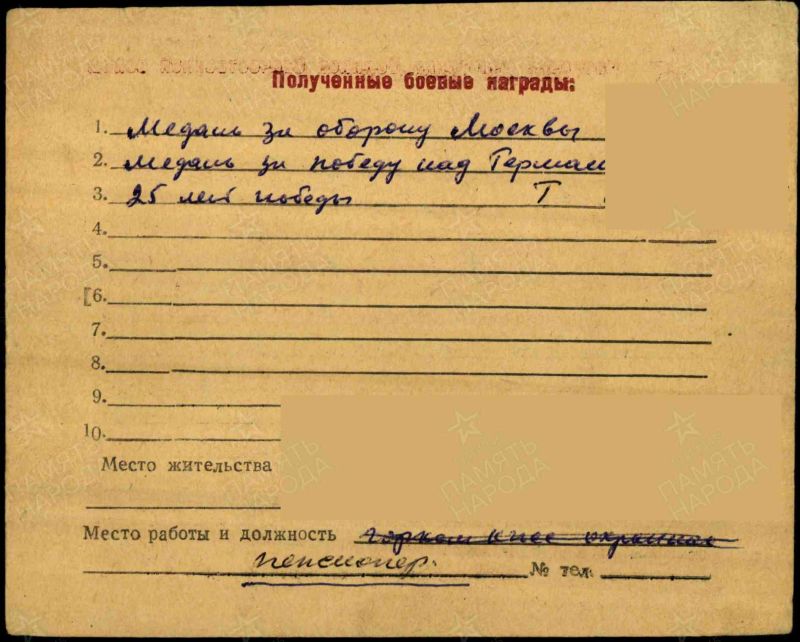 Полученные боевые награды:
1. Медаль за оборону Москвы
2. медаль за победу над Герман
3. 25 лет победы Т
4.
5.
6.
7.
8.
9.
10.
Место жительства
Место работы и должность горком
пенсионер. № тел.
ПАМЯТЬ НАРОДА